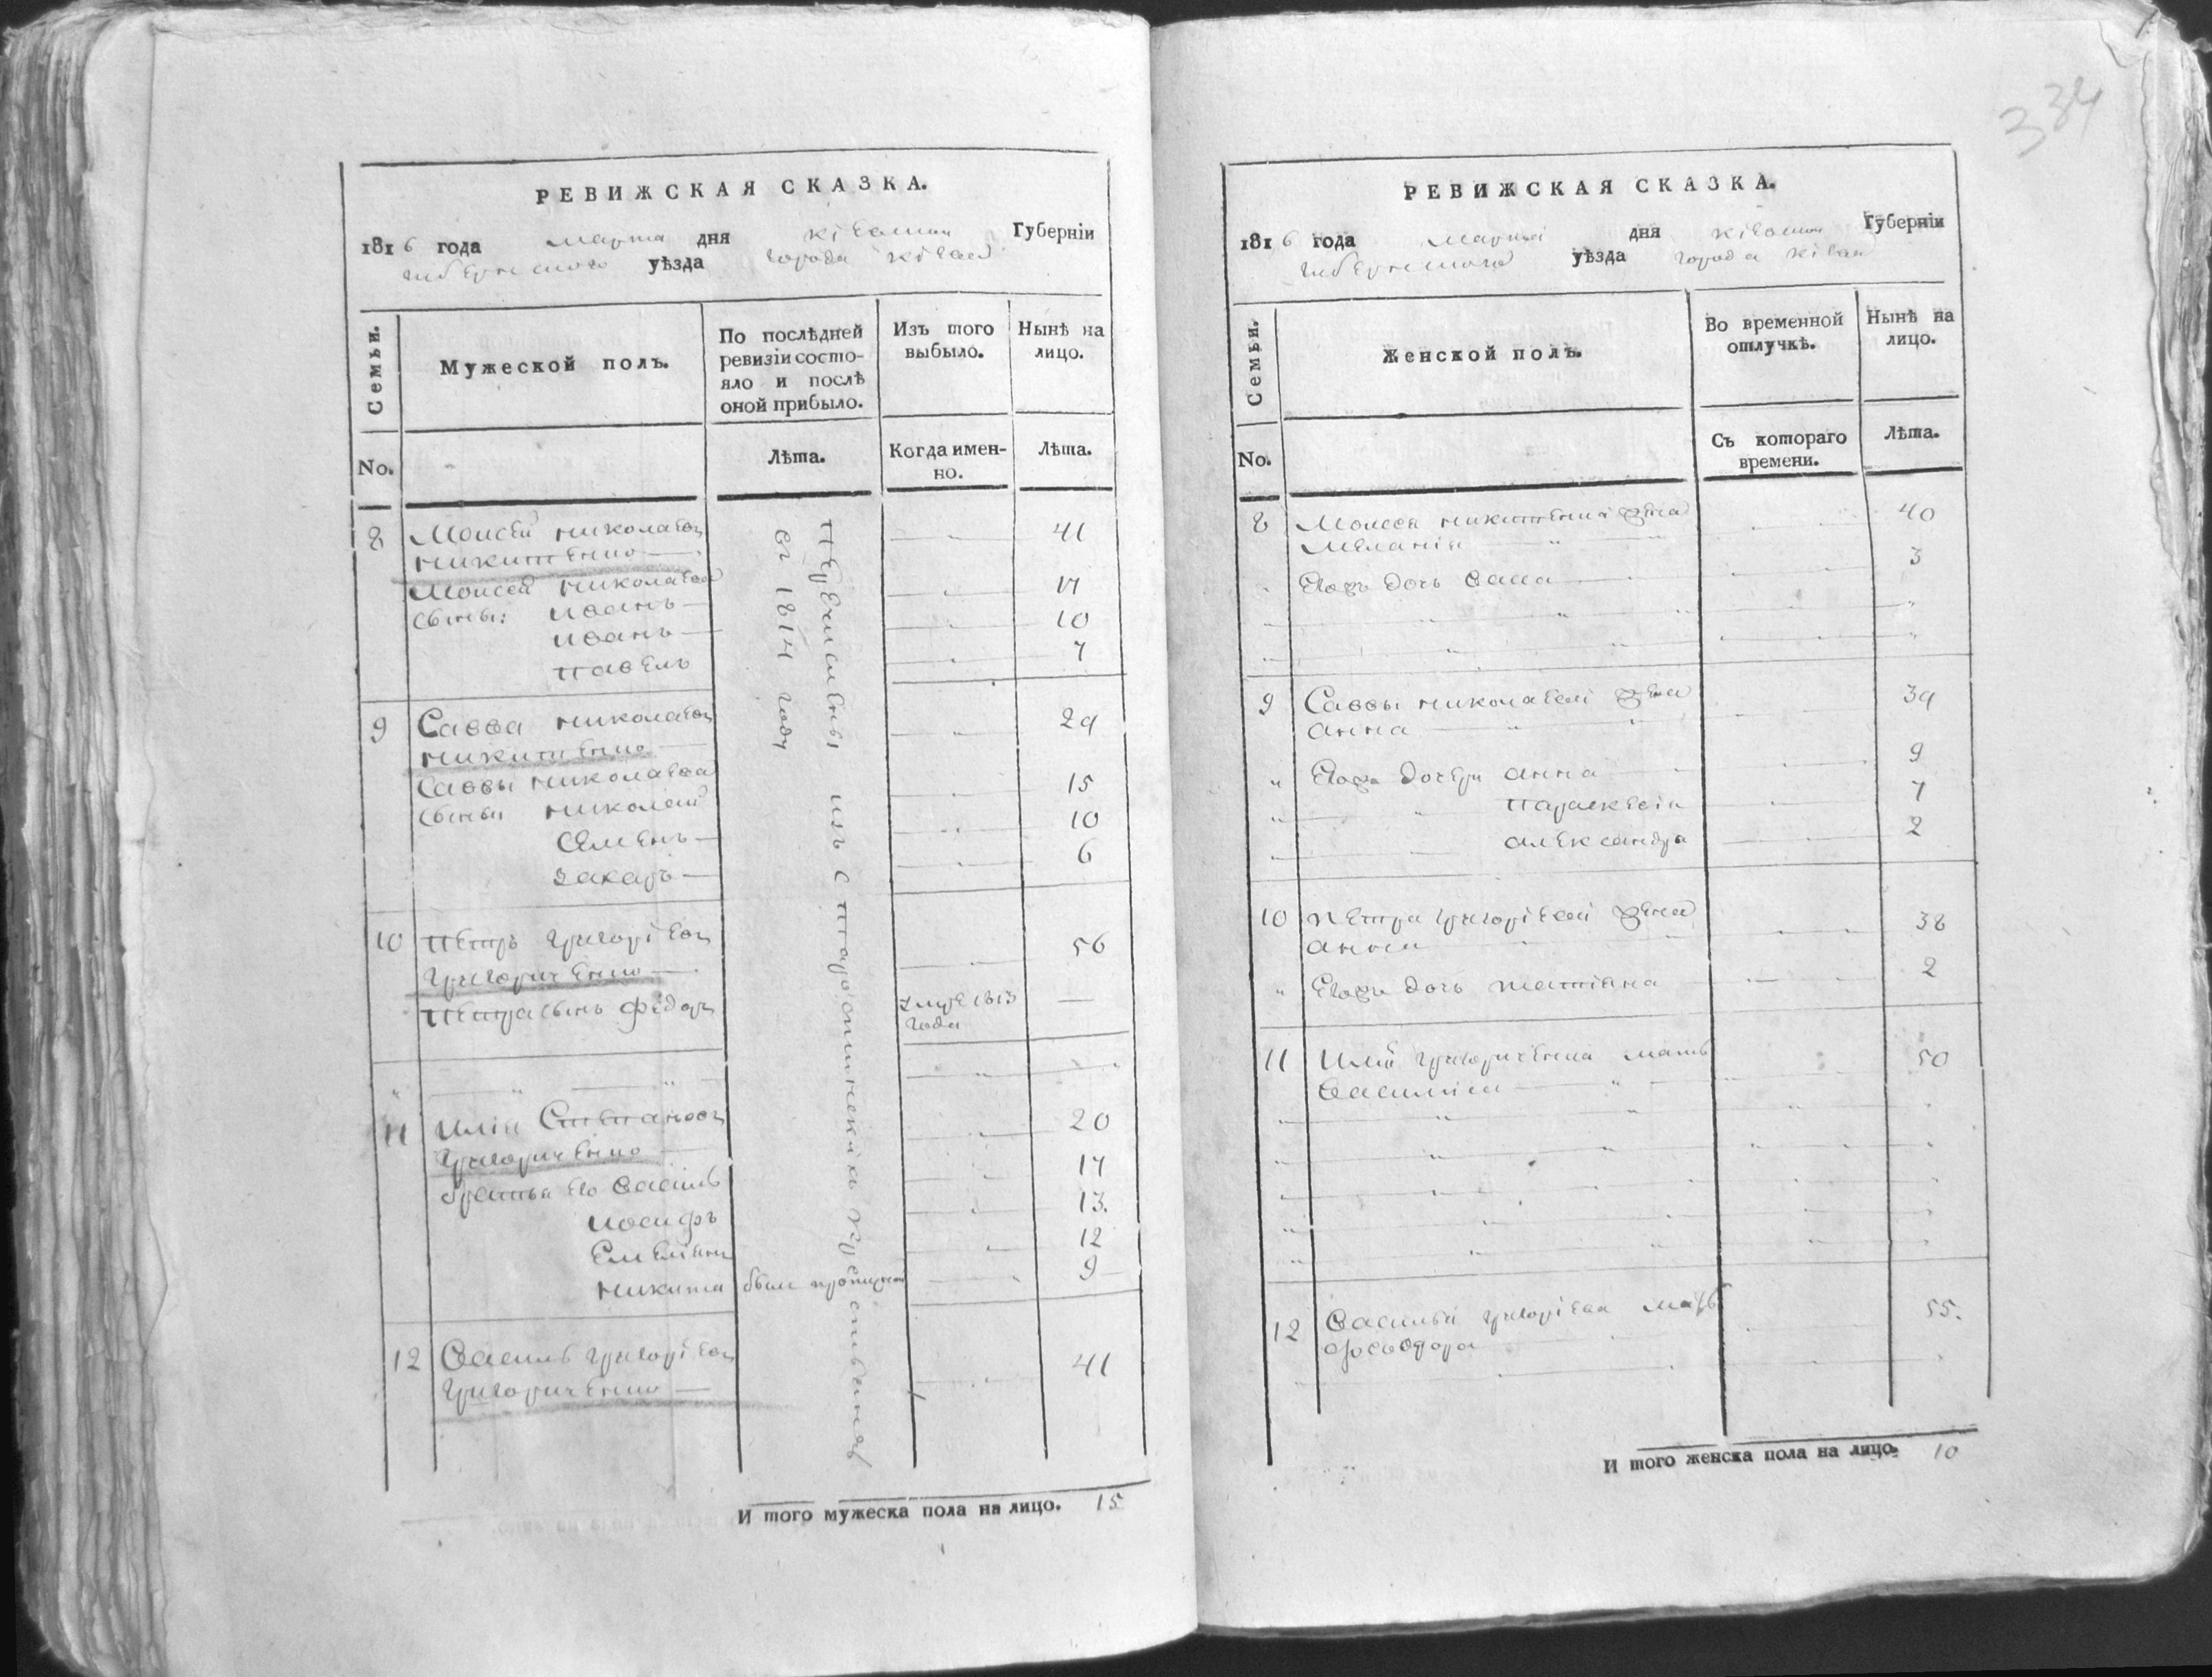 РЕВИЖСКАЯ СКАЗКА.
1816 года марта дня кіевской Губерніи
уѣзда города кіева
Семьи.
Мужеской полъ.
По послѣдней ревизіи состо-
яло и послѣ
оной прибыло.
Изъ того
выбыло.
Нынѣ на
лицо.
No.
Лѣта.
Когда имен-
но.
Лѣта.
перечисленны изъ старостинскихъ крестьянъ
въ 181
8 Моисей николаевъ 41
никитенко
Моисея николаева
сыны: иванъ
иванъ 10
павелъ 7
9 Савва николаевъ 29
никитенко
Саввы николаева
сыны николай 15
Семенъ 10
захаръ 6
10 петръ григоріевъ 56
григориченко
петра сынъ федоръ умре 1813
года
11 илія Степановъ 20
григориченко
братья его василь
иосифъ 13.
Емеліянъ 12
никита былъ 9
12 василь григоріевъ 41
григориченко
И того мужеска пола на лицо. 15
334
РЕВИЖСКАЯ СКАЗКА.
1816 года марта дня кіевской Губерніи
уѣзда города кіева
Семьи.
Женской полъ.
Во временной
отлучкѣ.
Нынѣ на
лицо.
No.
Съ котораго
времени.
Лѣта.
8 Моисея никитенка жена 40
Меланія
Егожъ дочь 3
9 Саввы николаева жена 39
анна
Егожъ дочери анна 9
параскевія 7
александра 2
10 петра григоріева жена 38
анна
Егожъ дочь татіяна 2
11 иліи григориченка мать 50
василиса
12 василья григоріева мать 55.
И того женска пола на лицо. 10